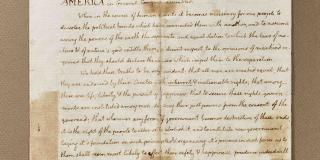 AMERICA in General Congress assembled.
When in the course of human events it becomes necessary for one people to
dissolve the political bands which have connected them with another, and to assume
among the powers of the earth the separate and equal station to which the laws of na-
ture & of nature's god entitle them, a decent respect to the opinions of mankind re-
quires that they should declare the causes which impel them to the separation.
We hold these truths to be self evident: that all men are created equal; that
they are endowed by their Creator with inalienable rights; that among
these are life, liberty, & the pursuit of happiness; that to secure these rights, govern-
ments are instituted among men, deriving their just powers from the consent of the
governed; that whenever any form of government becomes destructive of these ends,
it is the right of the people to alter or to abolish it, and to institute new government,
laying it's foundation on such principles & organising it's powers in such form as to
them shall seem most likely to effect their safety & happiness. prudence indeed will